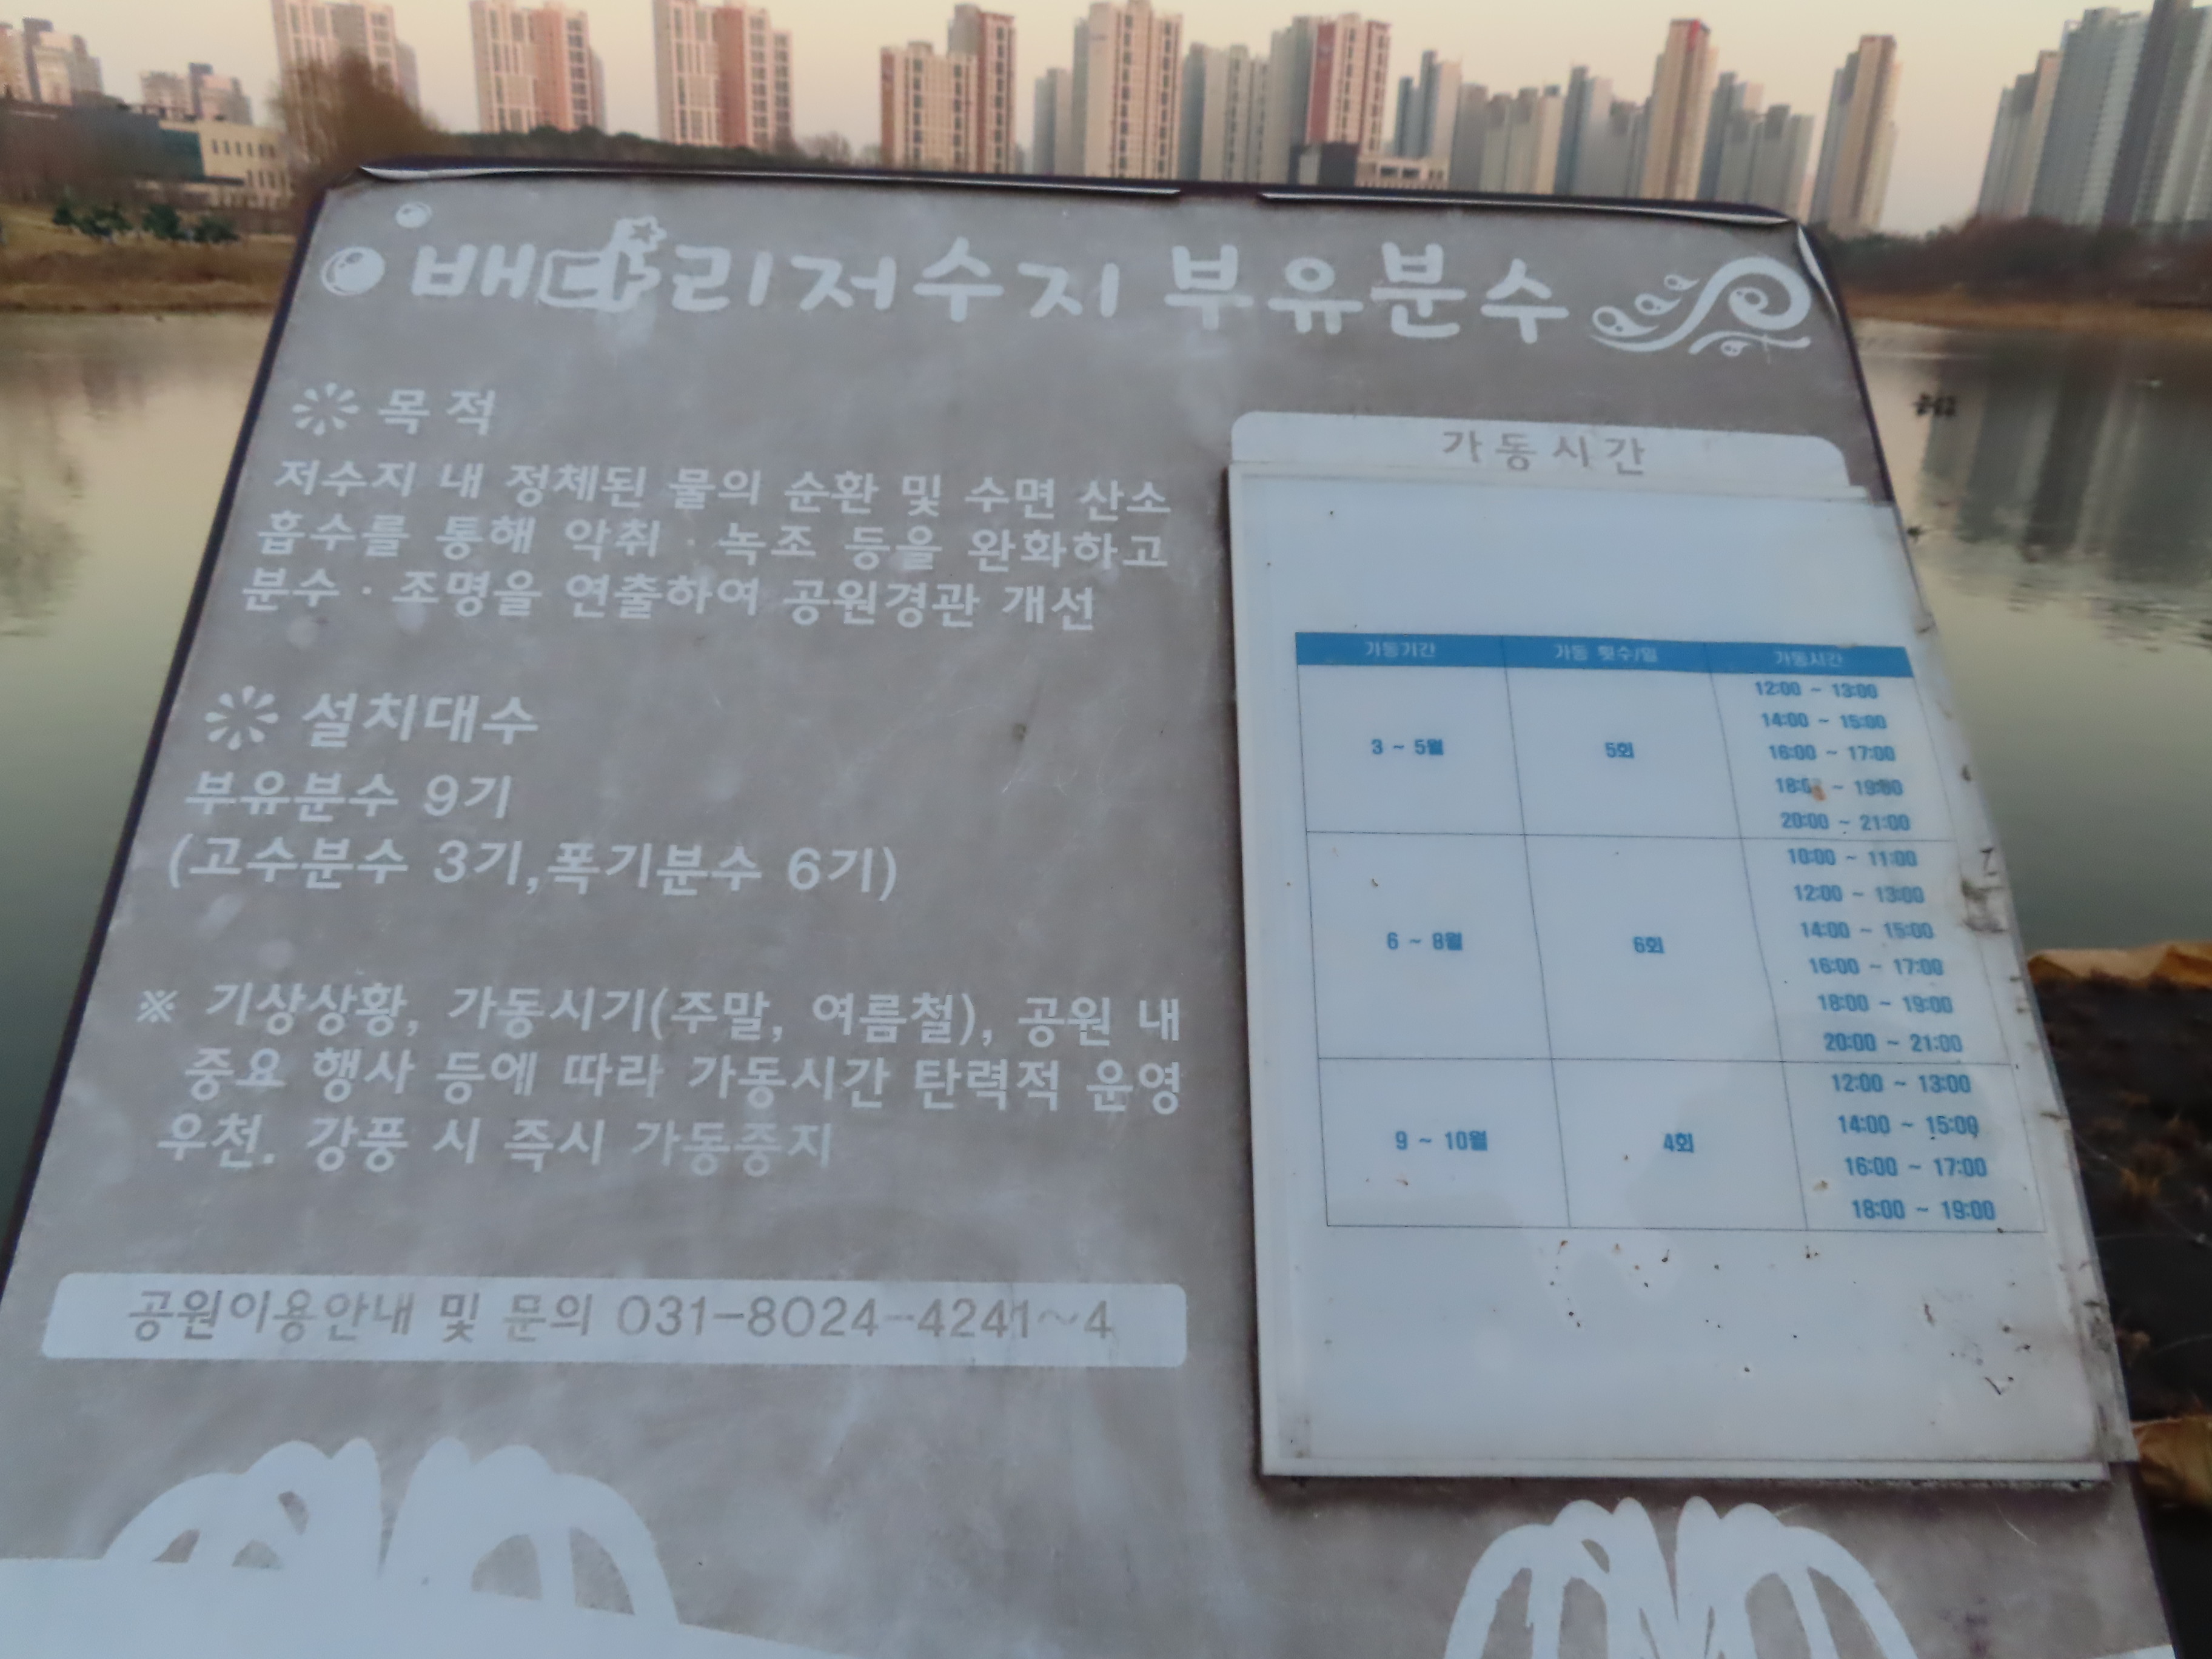 배다리저수지 부유분수
목적
저수지 내 정체된 물의 순환 및 수면 산소
흡수를 통해 악취 · 녹조 등을 완화하고
분수 · 조명을 연출하여 공원경관 개선
설치대수
부유분수 9기
(고수분수 3기,폭기분수 6기)
※ 기상상황, 가동시기(주말, 여름철), 공원 내
중요 행사 등에 따라 가동시간 탄력적 운영
우천. 강풍 시 즉시 가동중지
공원이용안내 및 문의 031-8024-4241~4
가동시간
가동기간 가동 횟수/일 가동시간
3 ~ 5월 5회
12:00 ~ 13:00
14:00 ~ 15:00
16:00 ~ 17:00
18:00 ~ 19:00
20:00 ~ 21:00
6 ~ 8월 6회
10:00 ~ 11:00
12:00 ~ 13:00
14:00 ~ 15:00
16:00 ~ 17:00
18:00 ~ 19:00
20:00 ~ 21:00
9 ~ 10월 4회
12:00 ~ 13:00
14:00 ~ 15:00
16:00 ~ 17:00
18:00 ~ 19:00